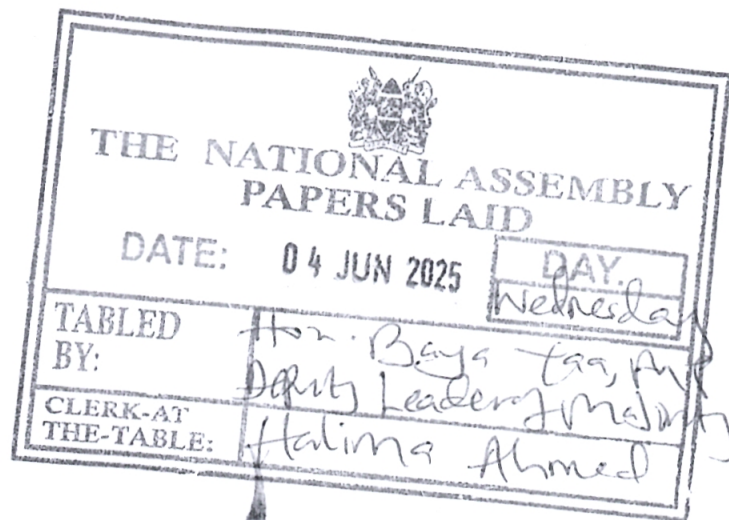 THE NATIONAL ASSEMBLY
PAPERS LAID
DATE: 04 JUN 2025
DAY.
Wednesday
TABLED
BY:
Hon. Baya Yaa, MP
Deputy Leader of Majority
CLERK-AT
THE-TABLE:
Halima Ahmed